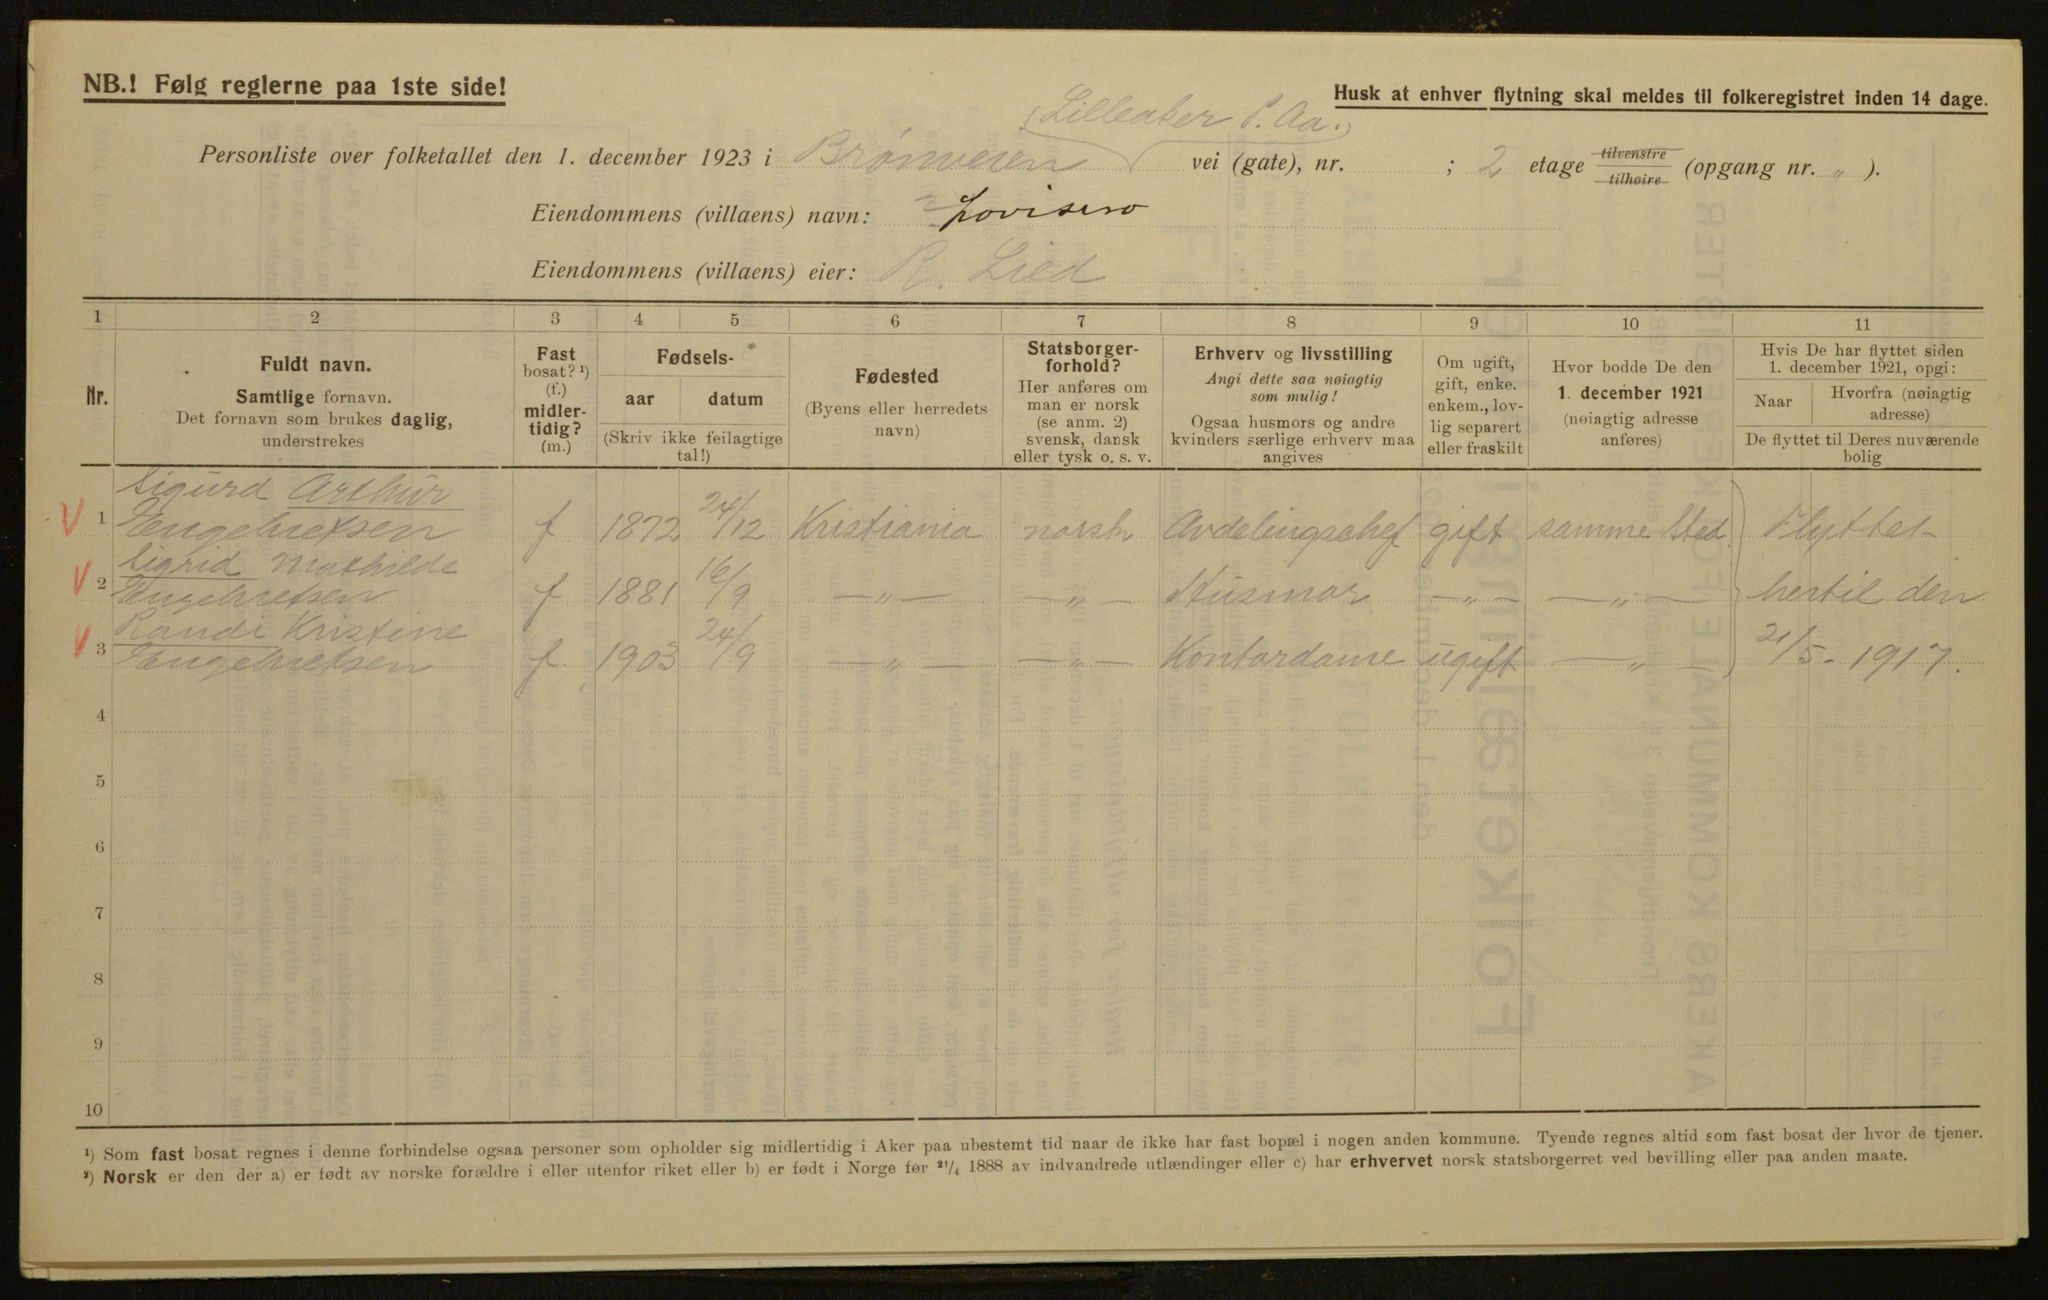 NB.! Følg reglerne paa 1ste side!
Husk at enhver flytning skal meldes til folkeregistret inden 14 dage.
(Lilleaker P. Aa.)
Personliste over folketallet den 1. december 1923 i Brønveien vei (gate), nr. ; 2 etage tilvenstre tilhøire (opgang nr. „ ).
Eiendommens (villaens) navn: Lovisero
Eiendommens (villaens) eier: R. Lied
1 2 3 4 5 6 7 8 9 10 11
Nr.
Fuldt navn.
Samtlige fornavn.
Det fornavn som brukes daglig,
understrekes
Fast
bosat? ¹)
(f.)
midler-
tidig?
(m.)
Fødsels-
aar datum
(Skriv ikke feilagtige
tal!)
Fødested
(Byens eller herredets
navn)
Statsborger-
forhold?
Her anføres om
man er norsk
(se anm. 2)
svensk, dansk
eller tysk o. s. v.
Erhverv og livsstilling
Angi dette saa nøiagtig
som mulig!
Ogsaa husmors og andre
kvinders særlige erhverv maa
angives
Om ugift,
gift, enke.
enkem., lov-
lig separert
eller fraskilt
Hvor bodde De den
1. december 1921
(nøiagtig adresse
anføres)
Hvis De har flyttet siden
1. december 1921, opgi:
Naar
Hvorfra (nøiagtig
adresse)
De flyttet til Deres nuværende
bolig
Sigurd Arthur
V 1 Engebretsen f 1872 24/12 Kristiania norsk Avdelingschef gift samme Sted Flyttet
Sigrid Mathilde
V 2 Engebretsen f 1881 16/9 —„— —„— Husmor —„— —„— hertil den
Randi Kristine
V 3 Engebretsen f. 1903 24/9 —„— —„— Kontordame ugift —„— 21/5 - 1917.
4
5
6
7
8
9
10
¹) Som fast bosat regnes i denne forbindelse ogsaa personer som opholder sig midlertidig i Aker paa ubestemt tid naar de ikke har fast bopæl i nogen anden kommune. Tyende regnes altid som fast bosat der hvor de tjener.
²) Norsk er den der a) er født av norske forældre i eller utenfor riket eller b) er født i Norge før ²¹/₄ 1888 av indvandrede utlændinger eller c) har erhvervet norsk statsborgerret ved bevilling eller paa anden maate.